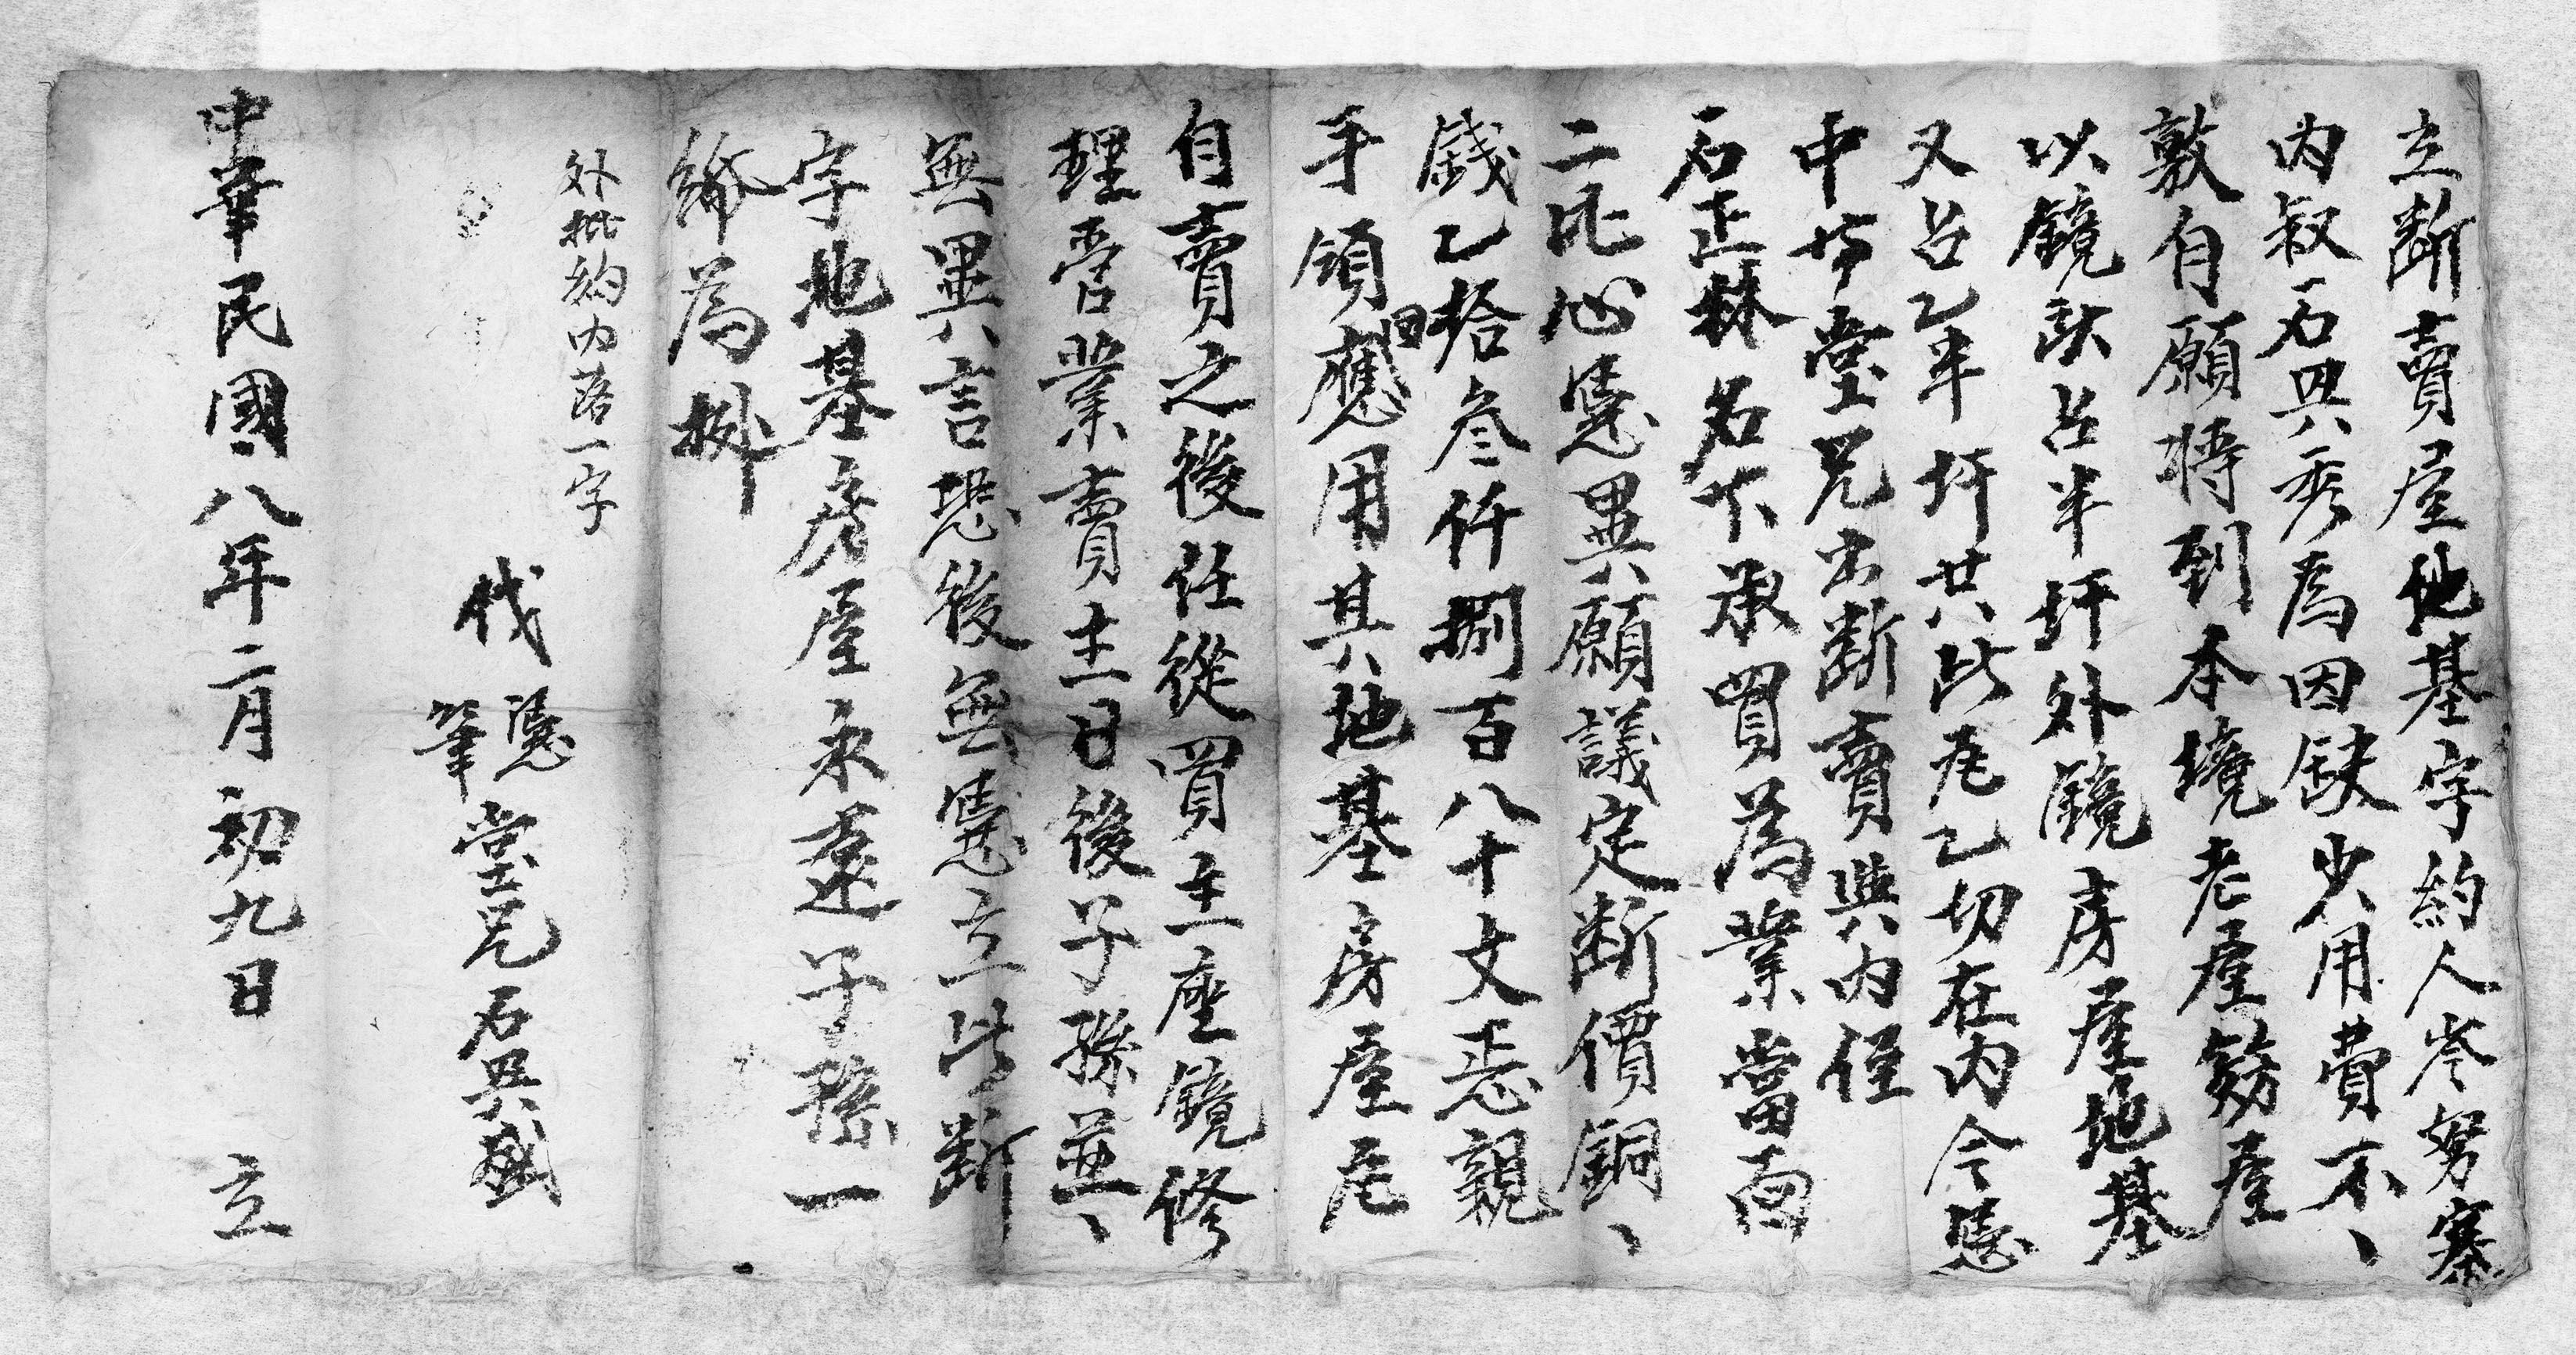 立斷賣屋地基字約人岑努寨
內叔石興秀為因缺少用費不、
敷自願將到本境老屋笏屋
以鏡訟呂半圩外鏡房屋地基
又呂乙半圩共此尾乙切在內今憑
中坊堂兄出斷賣與內侄
石正林名下承買為業當面
二比心憑異願議定斷價銅、
錢乙拾叁仟捌百八十文正悉親
手領回應用其地基房屋尾
自賣之後任從買主座鏡修
理營業賣主日後子孫並、
無異言恐後無憑立此斷
字地基房屋永遠子孫一
紙為據
外批約內落一字
憑
代筆堂兄石興盛
中華民國八年二月初九日 立